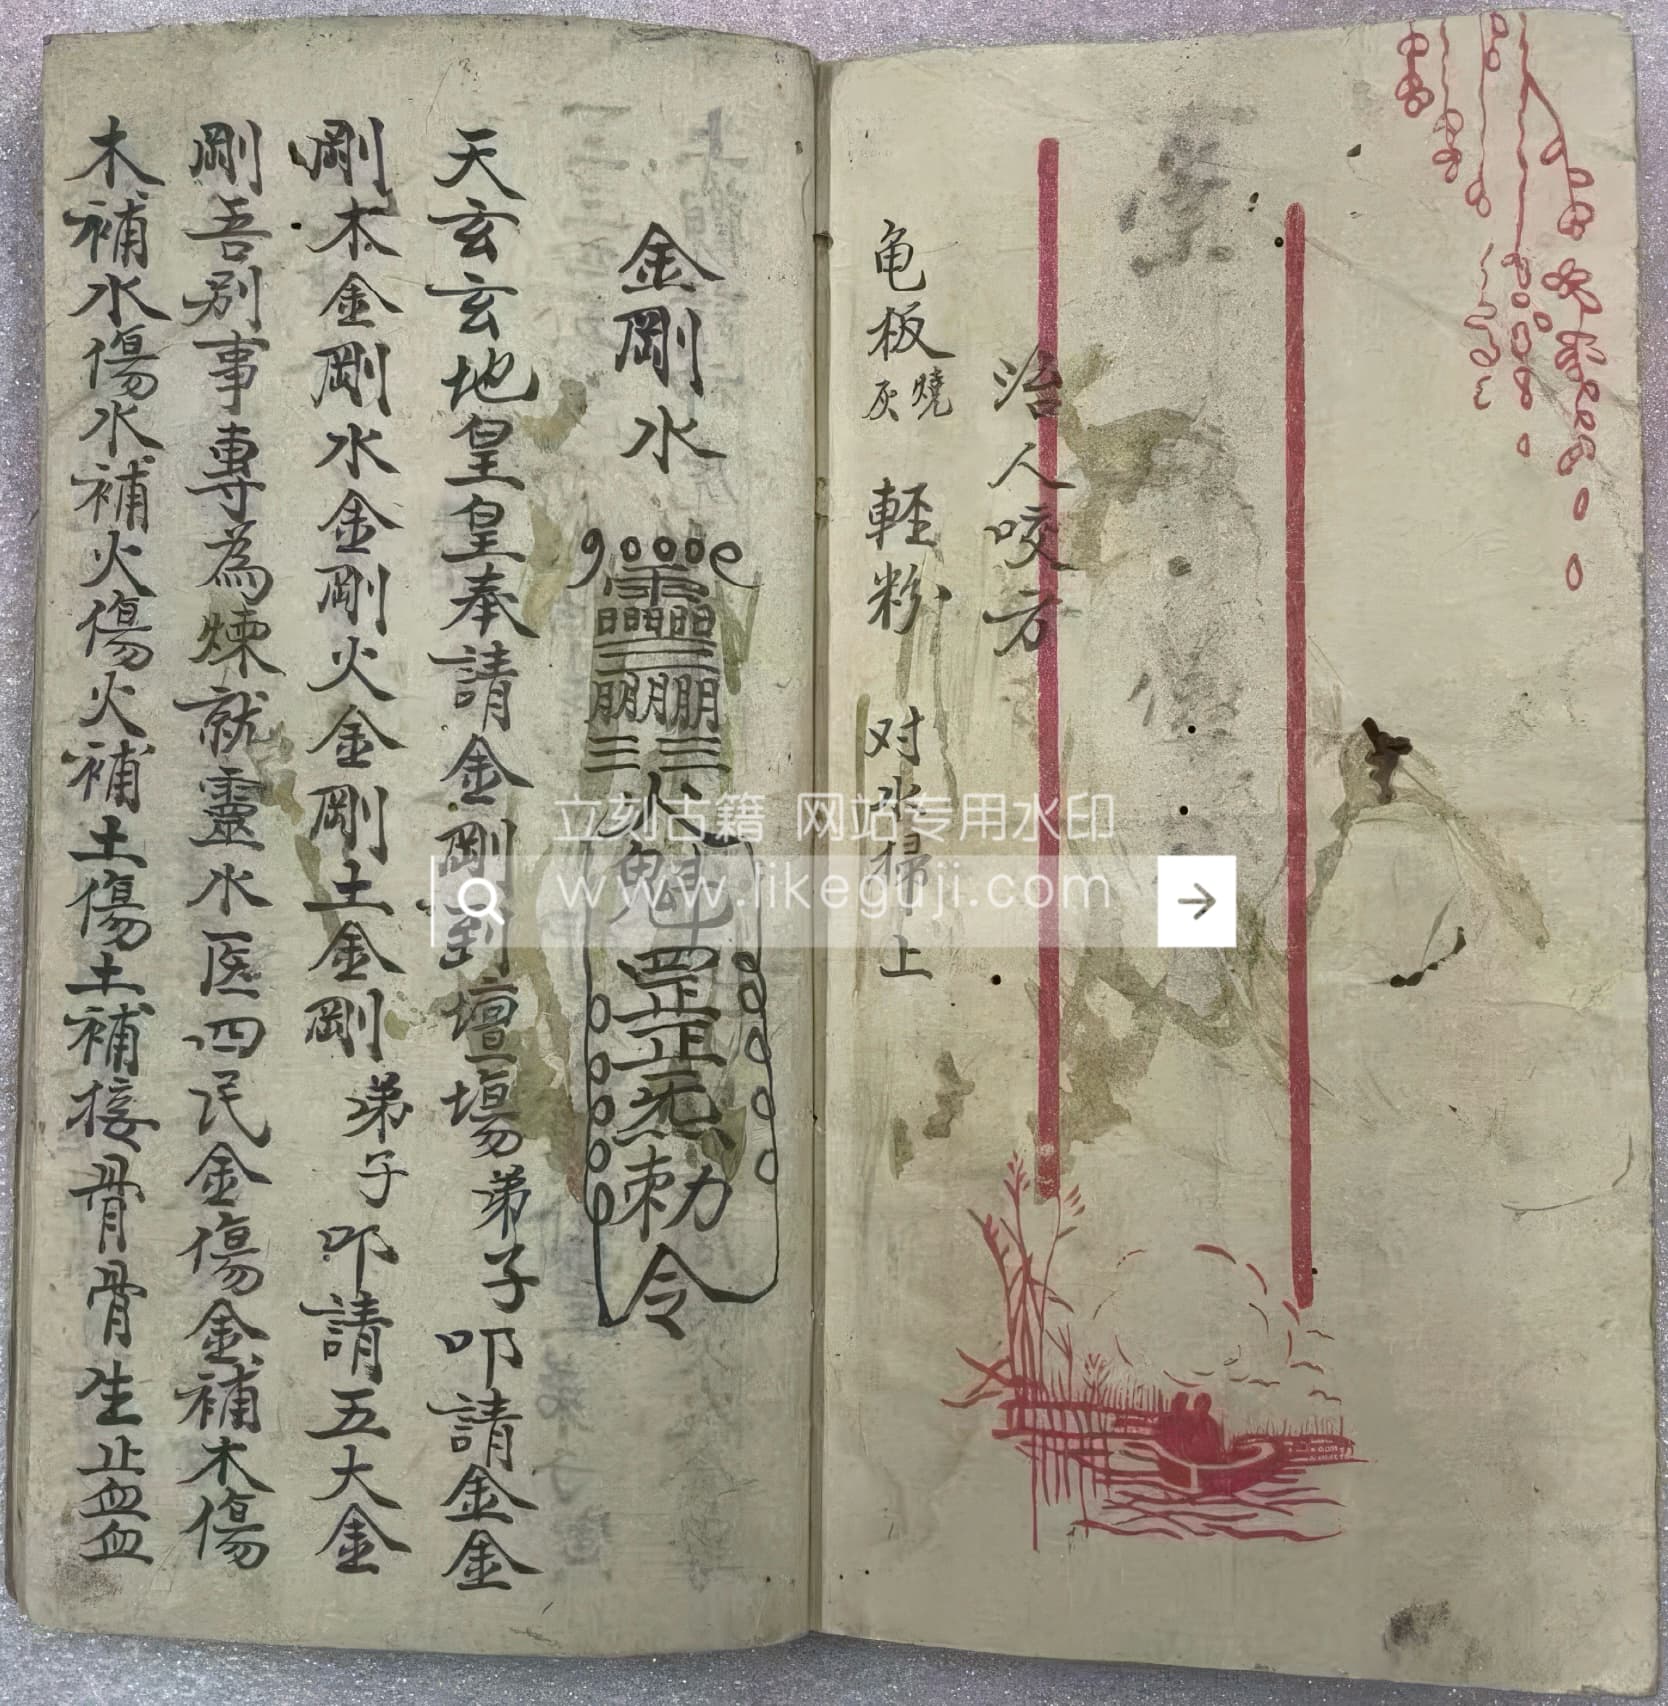 治人咬方
亀板燒灰 輕粉 对水掃上
金剛水
勅令
天玄玄地皇皇奉請金剛到壇場弟子叩請金金
剛木金剛水金剛火金剛土金剛弟子叩請五大金
剛吾别事專為煉就靈水医四民金傷金補木傷
木補水傷水補火傷火補土傷土補接骨骨生止血血
立刻古籍 网站专用水印
www.likeguji.com